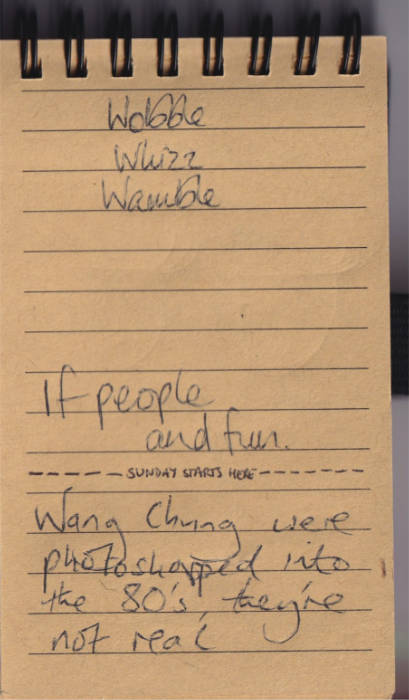 Wobble
Whizz
Wamble
If people
and fun.
SUNDAY STARTS HERE
Wang Chung were
photoshopped into
the 80's, they're
not real